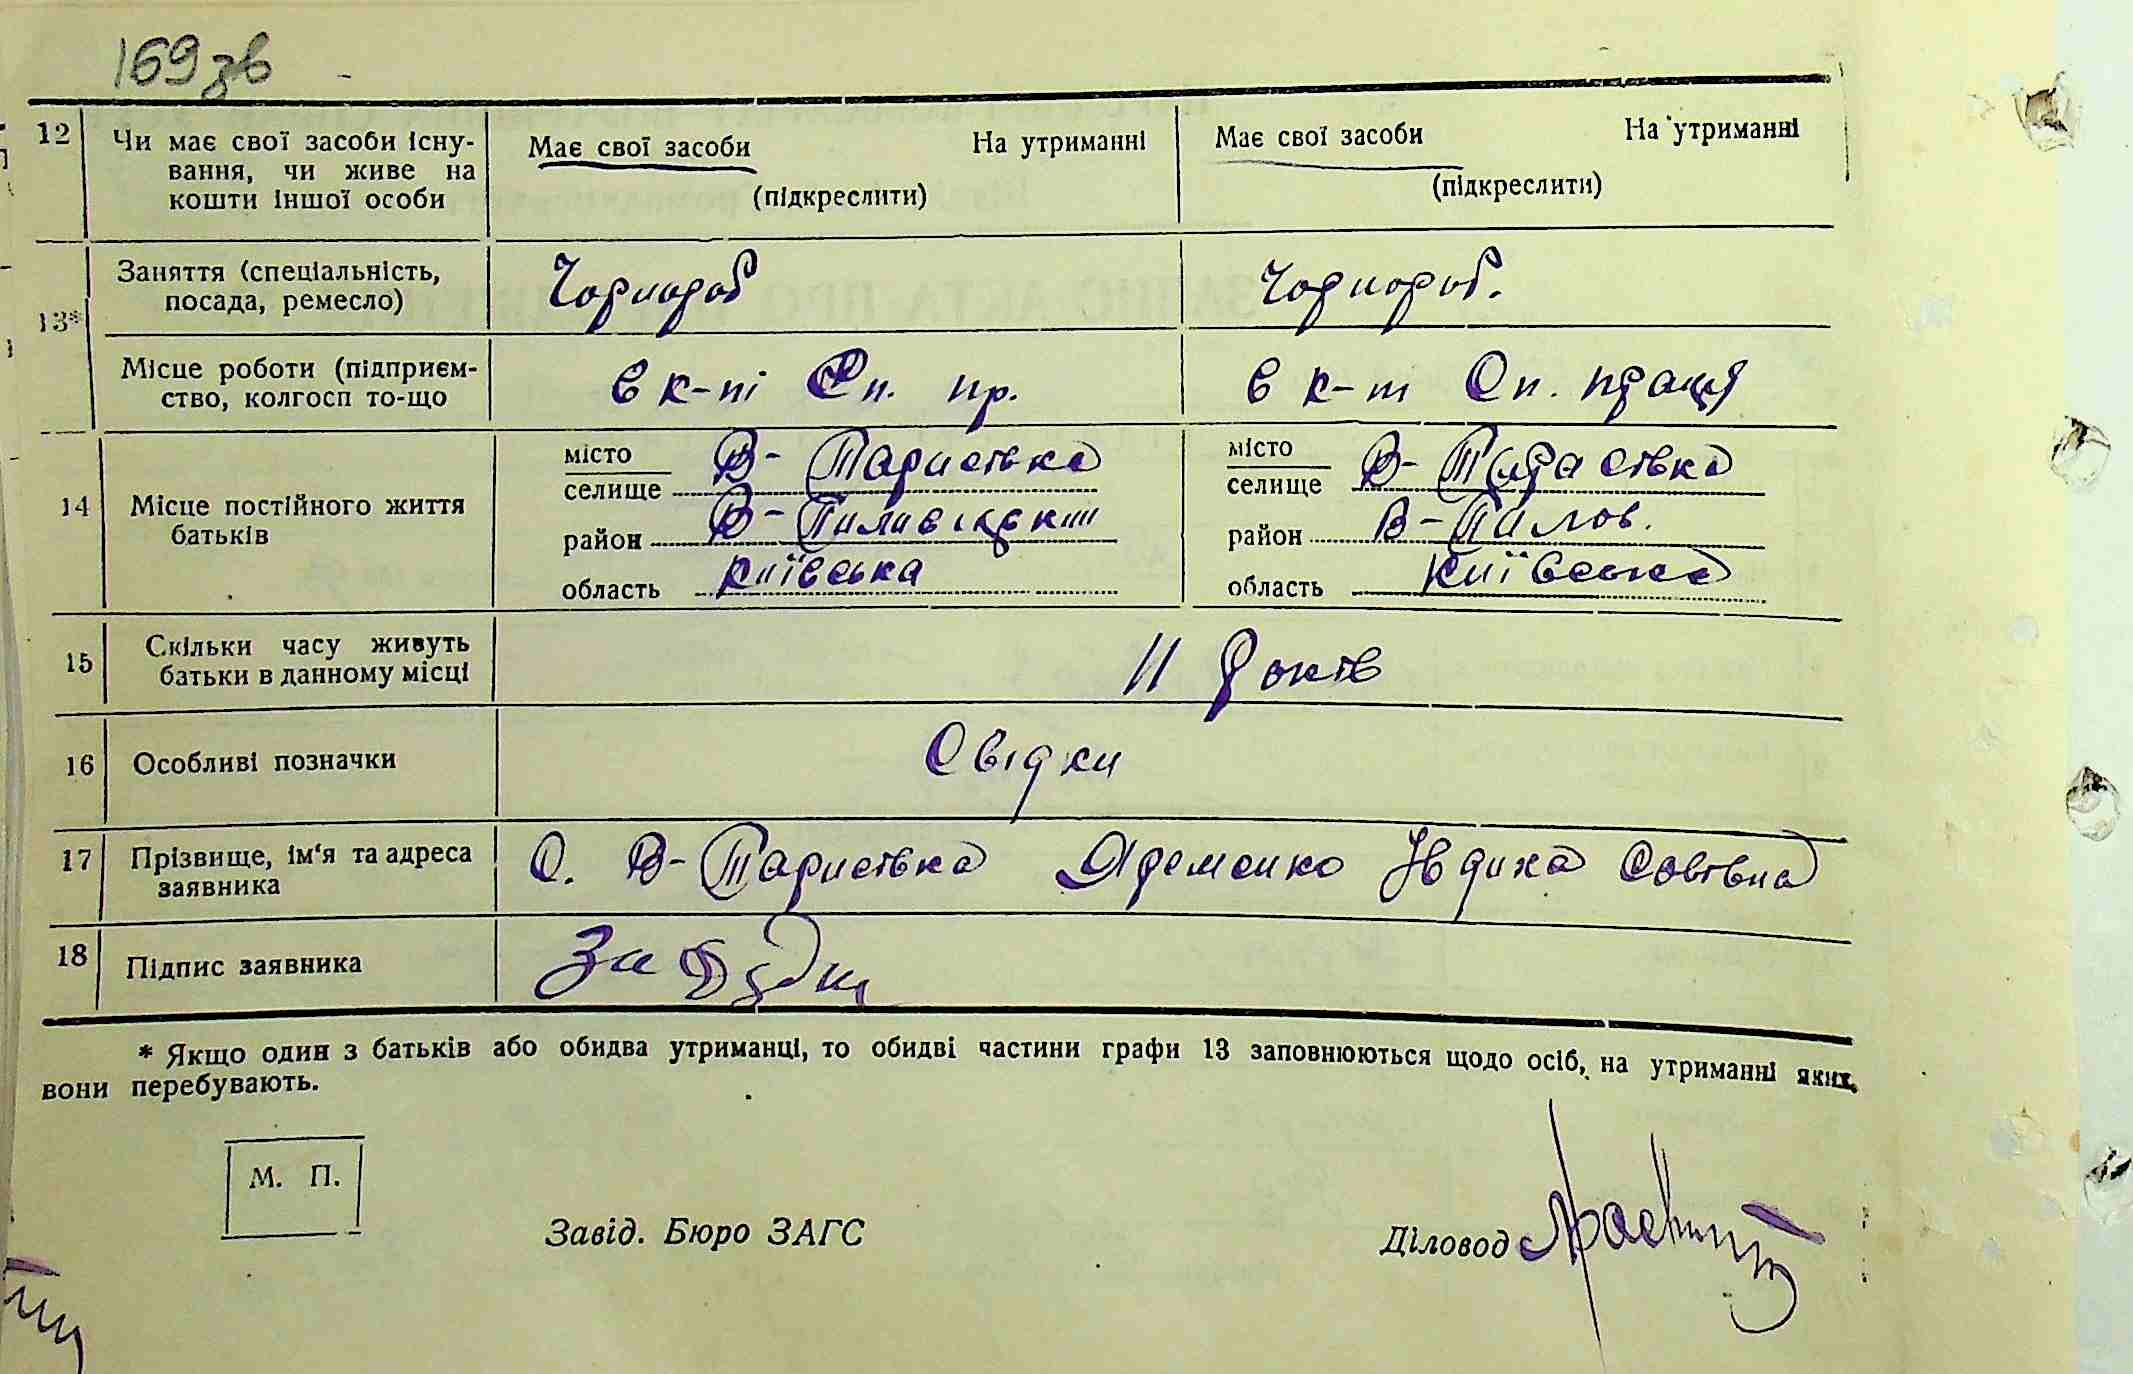 169 зв
12 Чи має свої засоби існу- Має свої засоби На утриманні Має свої засоби На утриманні
вання, чи живе на (підкреслити) (підкреслити)
кошти іншої особи
13* Заняття (спеціальність, Чорнороб Чорнороб.
посада, ремесло)
Місце роботи (підприєм- в к-пі Сп. пр. в к-пі Сп. праця
ство, колгосп то-що
14 Місце постійного життя батьків
місто В-
селище
район В-
область Київська
місто В-
селище
район В-
область Київська
15 Скільки часу живуть 11 Років
батьки в данному місці
16 Особливі позначки Свідки
17 Прізвище, ім'я та адреса С. В- Яременко Івдиха Савівна
заявника
18 Підпис заявника За
* Якщо один з батьків або обидва утриманці, то обидві частини графи 13 заповнюються щодо осіб, на утриманні яких
вони перебувають.
М. П.
Завід. Бюро ЗАГС Діловод